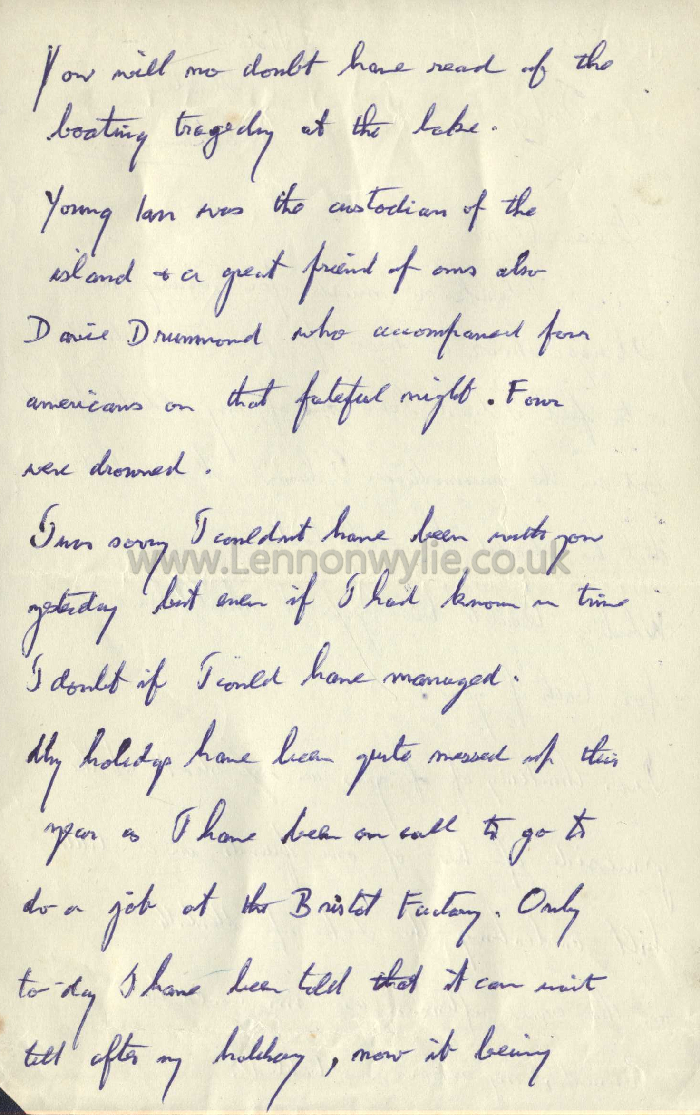 You will no doubt have read of the
boating tragedy at the lake.
Young Ian was the custodian of the
island & a great friend of ours also
Davie Drummond who accompanied four
americans on that fateful night. Four
were drowned.
I was sorry I couldnt have been with you
www.Lennonwylie.co.uk
yesterday but even if I had known in time
I doubt if I could have managed.
My holidays have been quite messed up this
year as I have been on call to go to
do a job at the Bristol Factory. Only
to-day I have been told that it can wait
till after my holiday, now it being